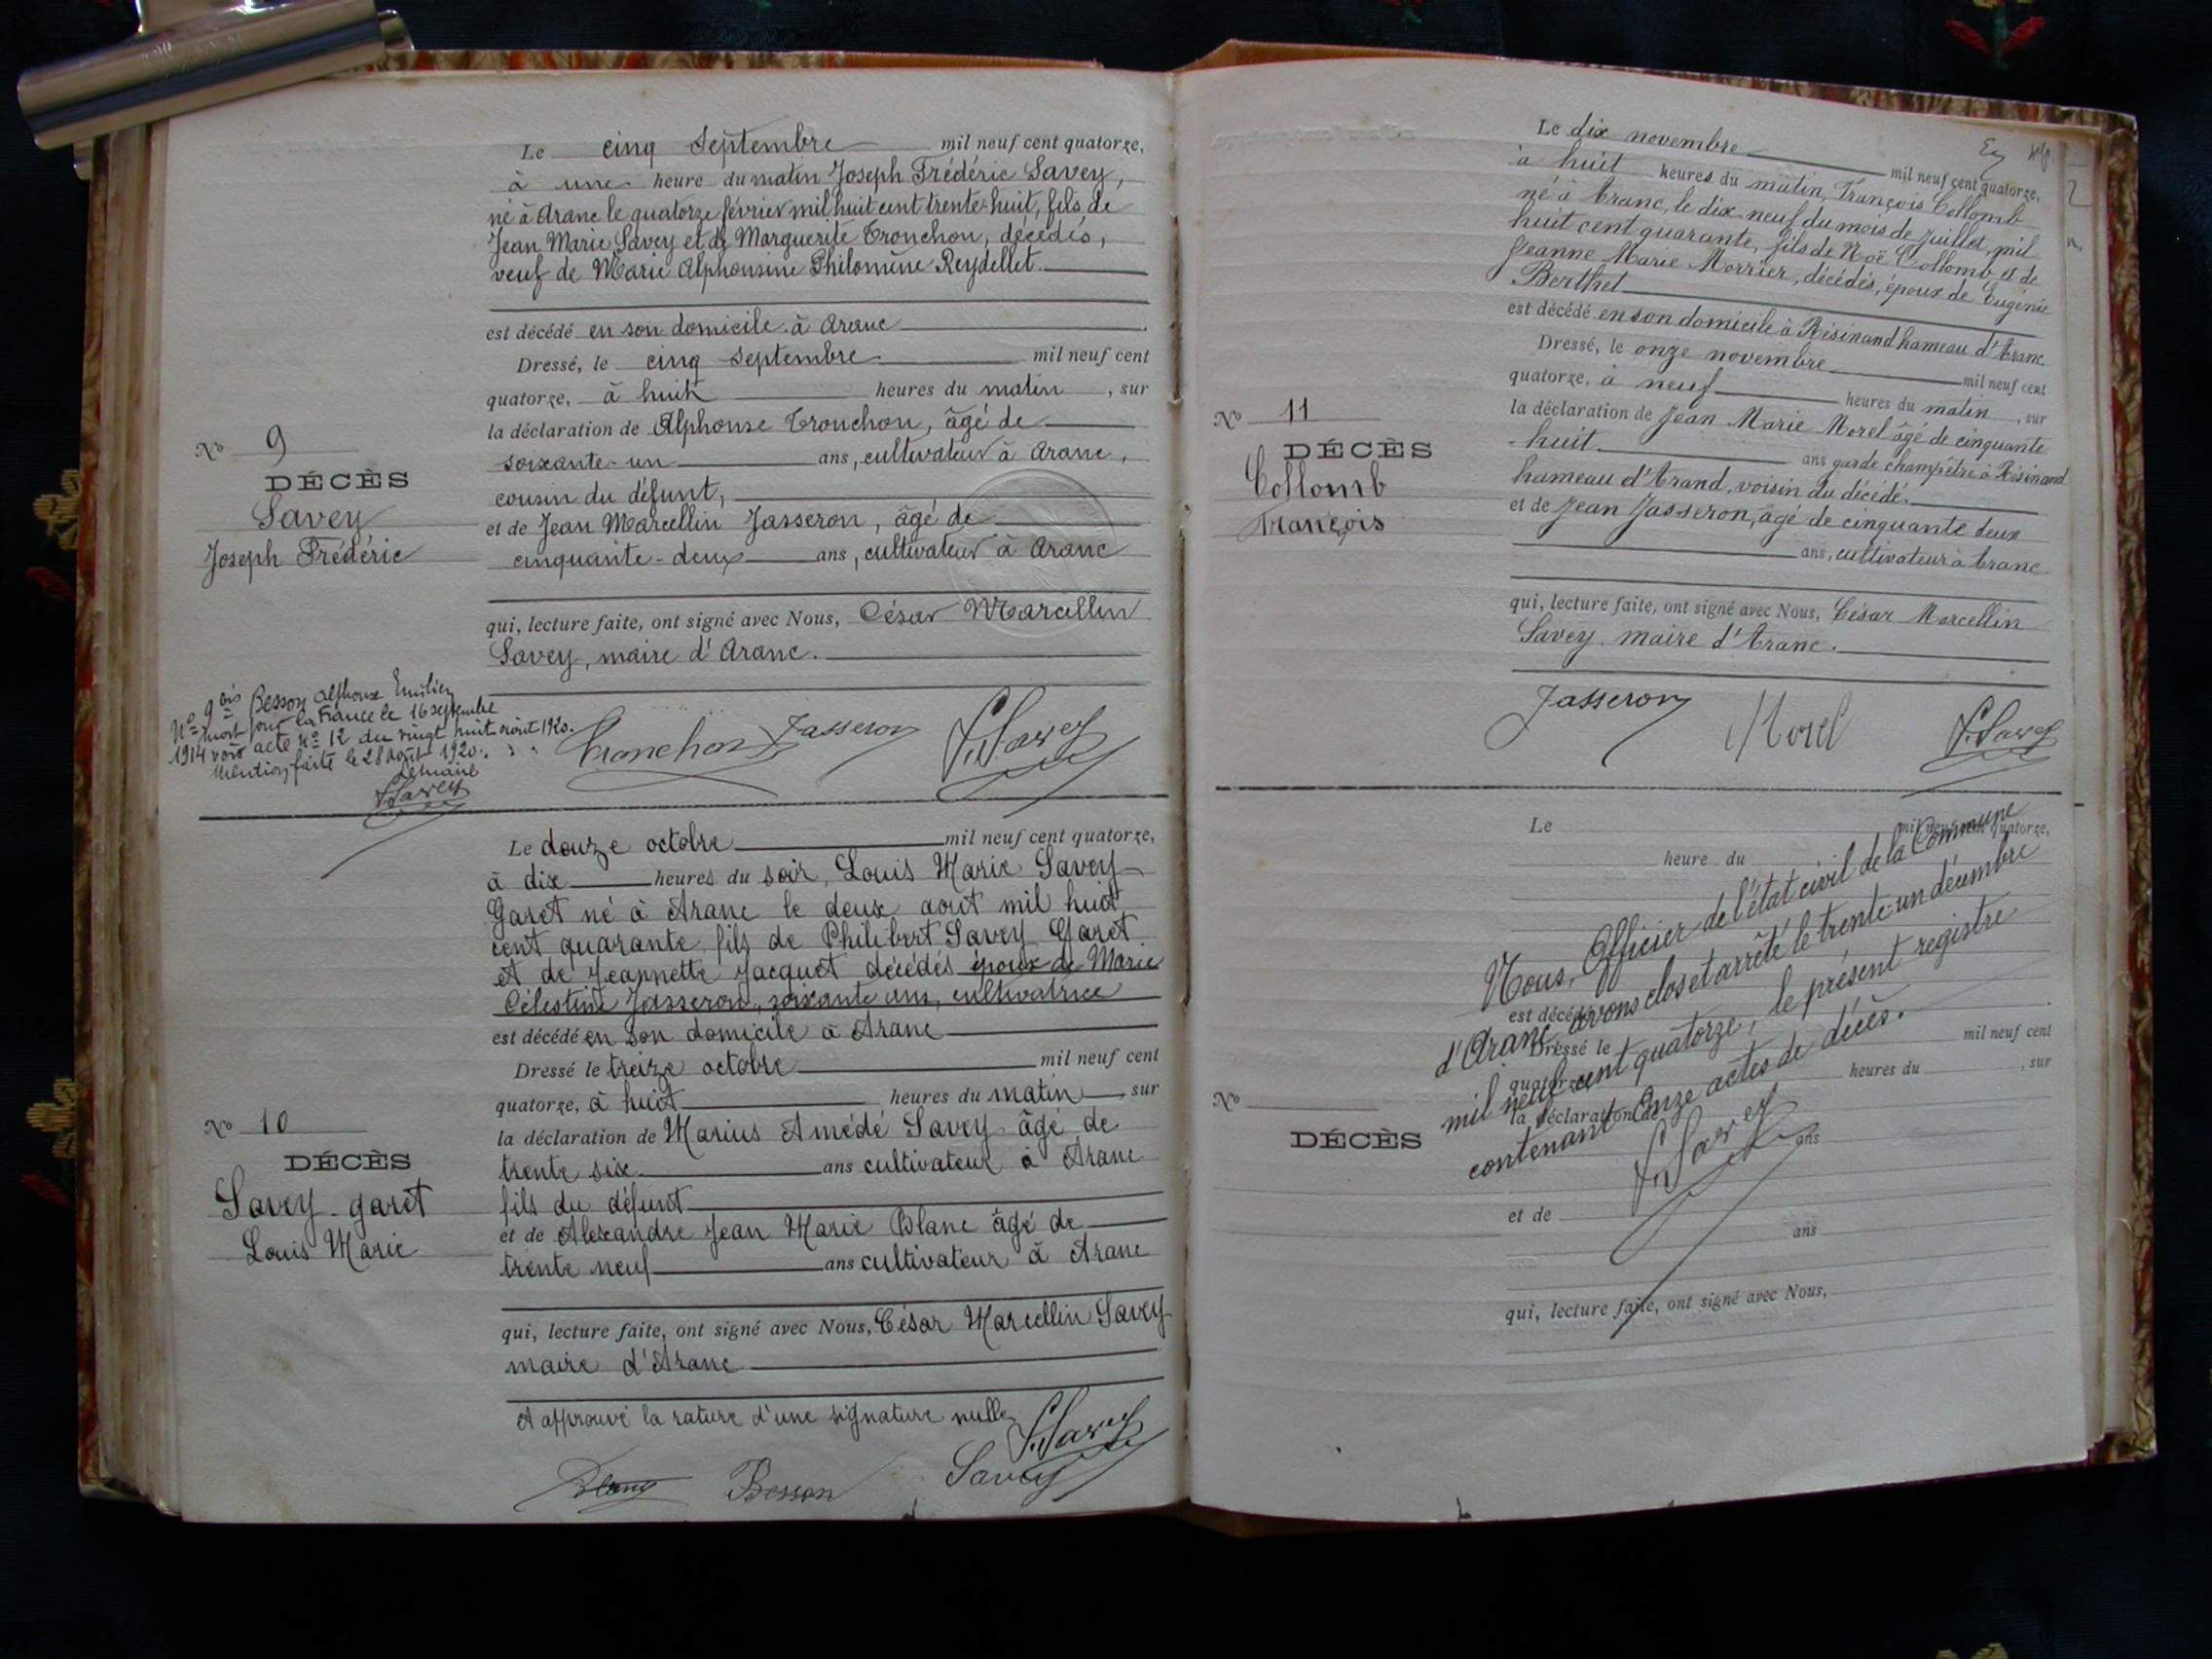 Le cinq Septembre mil neuf cent quatorze,
à une heure du matin Joseph Frédéric Savey,
né à Aranc le quatorze février mil huit cent trente-huit, fils de
Jean Marie Savey et de Marguerite Tronchon, décédés,
veuf de Marie Alphonsine Philomène Reydellet.
est décédé en son domicile à Aranc
Dressé, le cinq Septembre mil neuf cent
quatorze, à huit heures du matin, sur
la déclaration de Alphonse Tronchon, âgé de
soixante-un ans, cultivateur à Aranc,
cousin du défunt,
et de Jean Marcellin Jasseron, âgé de
cinquante-deux ans, cultivateur à Aranc
qui, lecture faite, ont signé avec Nous, César Marcellin
Savey, maire d'Aranc.
No 9
DÉCÈS
Savey
Joseph Frédéric
No 9 bis Besson Alphonse Emilien
mort pour la France le 16 septembre
1914 voir acte No 12 du vingt huit août 1920.
Mention faite le 28 août 1920.
Le maire
Savey
Tronchon Jasseron Savey
Le douze octobre mil neuf cent quatorze,
à dix heures du soir, Louis Marie Savey
Garet né à Aranc le deux aout mil huit
cent quarante fils de Philibert Savey Garet
et de Jeannette Jacquet décédés époux de Marie
Célestine Jasseron, soixante ans, cultivatrice
est décédé en son domicile à Aranc
Dressé le treize octobre mil neuf cent
quatorze, à huit heures du matin, sur
la déclaration de Marius Amédé Savey âgé de
trente six ans cultivateur à Aranc
fils du défunt
et de Alexandre Jean Marie Blanc âgé de
trente neuf ans cultivateur à Aranc
qui, lecture faite, ont signé avec Nous, César Marcellin Savey
maire d'Aranc
et approuvé la rature d'une signature nulle
Blanc Besson Savey Savey
No 10
DÉCÈS
Savey-garet
Louis Marie
Le dix novembre mil neuf cent quatorze,
à huit heures du matin, François Collomb
né à Aranc, le dix-neuf du mois de Juillet, mil
huit cent quarante, fils de Noë Collomb et de
Jeanne Marie Morrier, décédés, époux de Eugénie
Berthet
est décédé en son domicile à Résinand hameau d'Aranc
Dressé, le onze novembre mil neuf cent
quatorze, à neuf heures du matin, sur
la déclaration de Jean Marie Morel âgé de cinquante
-huit ans garde champêtre à Résinand
hameau d'Arand, voisin du décédé.
et de Jean Jasseron, âgé de cinquante deux
ans, cultivateur à Aranc
qui, lecture faite, ont signé avec Nous, César Marcellin
Savey maire d'Aranc.
No 11
DÉCÈS
Collomb
François
Jasseron Morel Savey
Le mil neuf cent quatorze,
heure du
Nous, Officier de l'état civil de la Commune
d'Aranc avons clos et arrêté le trente-un décembre
mil neuf cent quatorze, le présent registre
contenant Onze actes de décès.
Savey
est décédé
Dressé le mil neuf cent
quatorze, heures du , sur
la déclaration de
ans
et de
ans
qui, lecture faite, ont signé avec Nous,
No
DÉCÈS